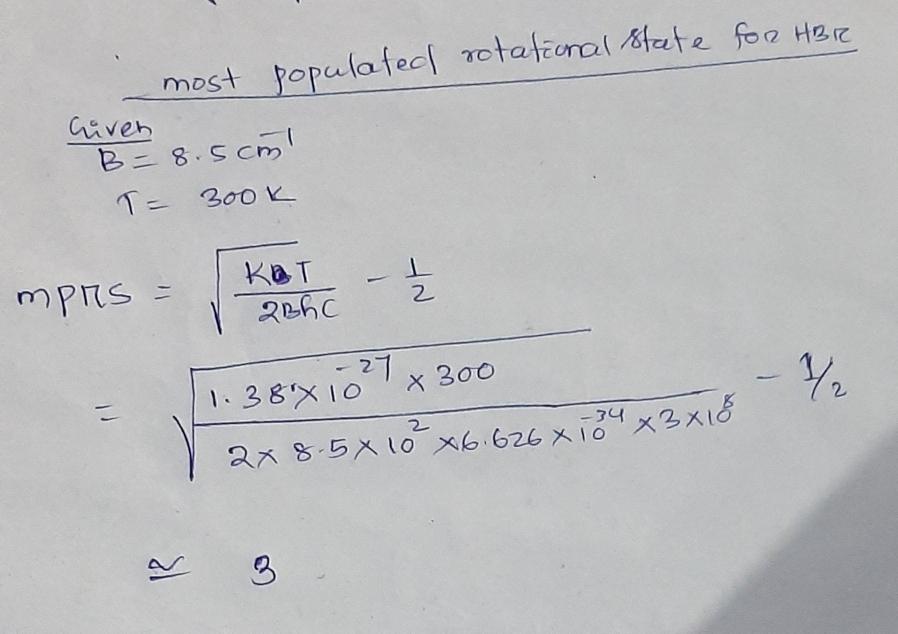 most populated rotational state for HBR
Given
B = 8.5 cm⁻¹
T = 300 K
mpRS = √(KBT / 2BhC) - 1/2
= √(1.38 × 10⁻²⁷ × 300 / 2 × 8.5 × 10² × 6.626 × 10⁻³⁴ × 3 × 10⁸) - 1/2
≃ 3